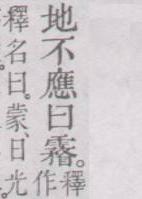 地不應曰霿。釋
作
釋名曰。蒙、日光